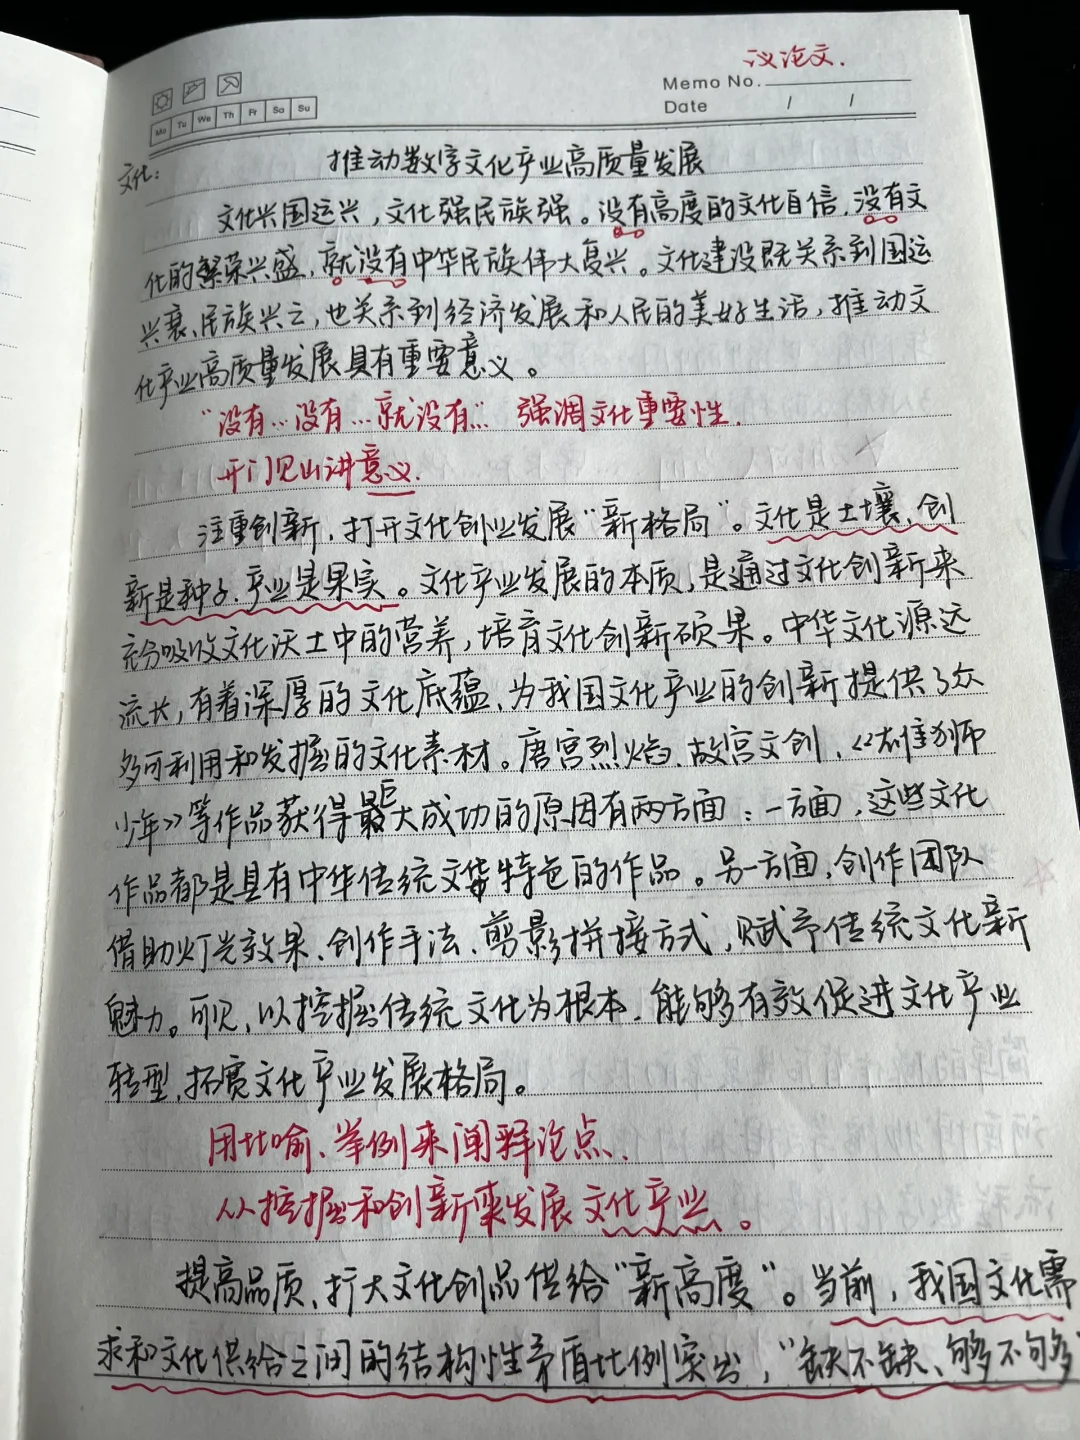 议论文.
Memo No.
Mo Tu We Th Fr Sa Su
Date / /
文化:
推动数字文化产业高质量发展
文化兴国运兴,文化强民族强。没有高度的文化自信,没有文
化的繁荣兴盛,就没有中华民族伟大复兴。文化建设既关系到国运
兴衰、民族兴亡,也关系到经济发展和人民的美好生活,推动文
化产业高质量发展具有重要意义。
“没有…没有…就没有…” 强调文化重要性.
开门见山讲意义.
注重创新,打开文化创业发展“新格局”。文化是土壤,创
新是种子,产业是果实。文化产业发展的本质,是通过文化创新来
充分吸收文化沃土中的营养,培育文化创新硕果。中华文化源远
流长,有着深厚的文化底蕴,为我国文化产业的创新提供了众
多可利用和发掘的文化素材。唐宫烈焰、故宫文创、《雄狮
少年》等作品获得最巨大成功的原因有两方面:一方面,这些文化
作品都是具有中华传统文化特色的作品。另一方面,创作团队
借助灯光效果、创作手法、剪影拼接方式,赋予传统文化新
魅力。可见,以挖掘传统文化为根本,能够有效促进文化产业
转型,拓宽文化产业发展格局。
用比喻、举例来阐释论点.
从挖掘和创新来发展文化产业。
提高品质,扩大文化创品供给“新高度”。当前,我国文化需
求和文化供给之间的结构性矛盾比例突出,“缺不缺、够不够